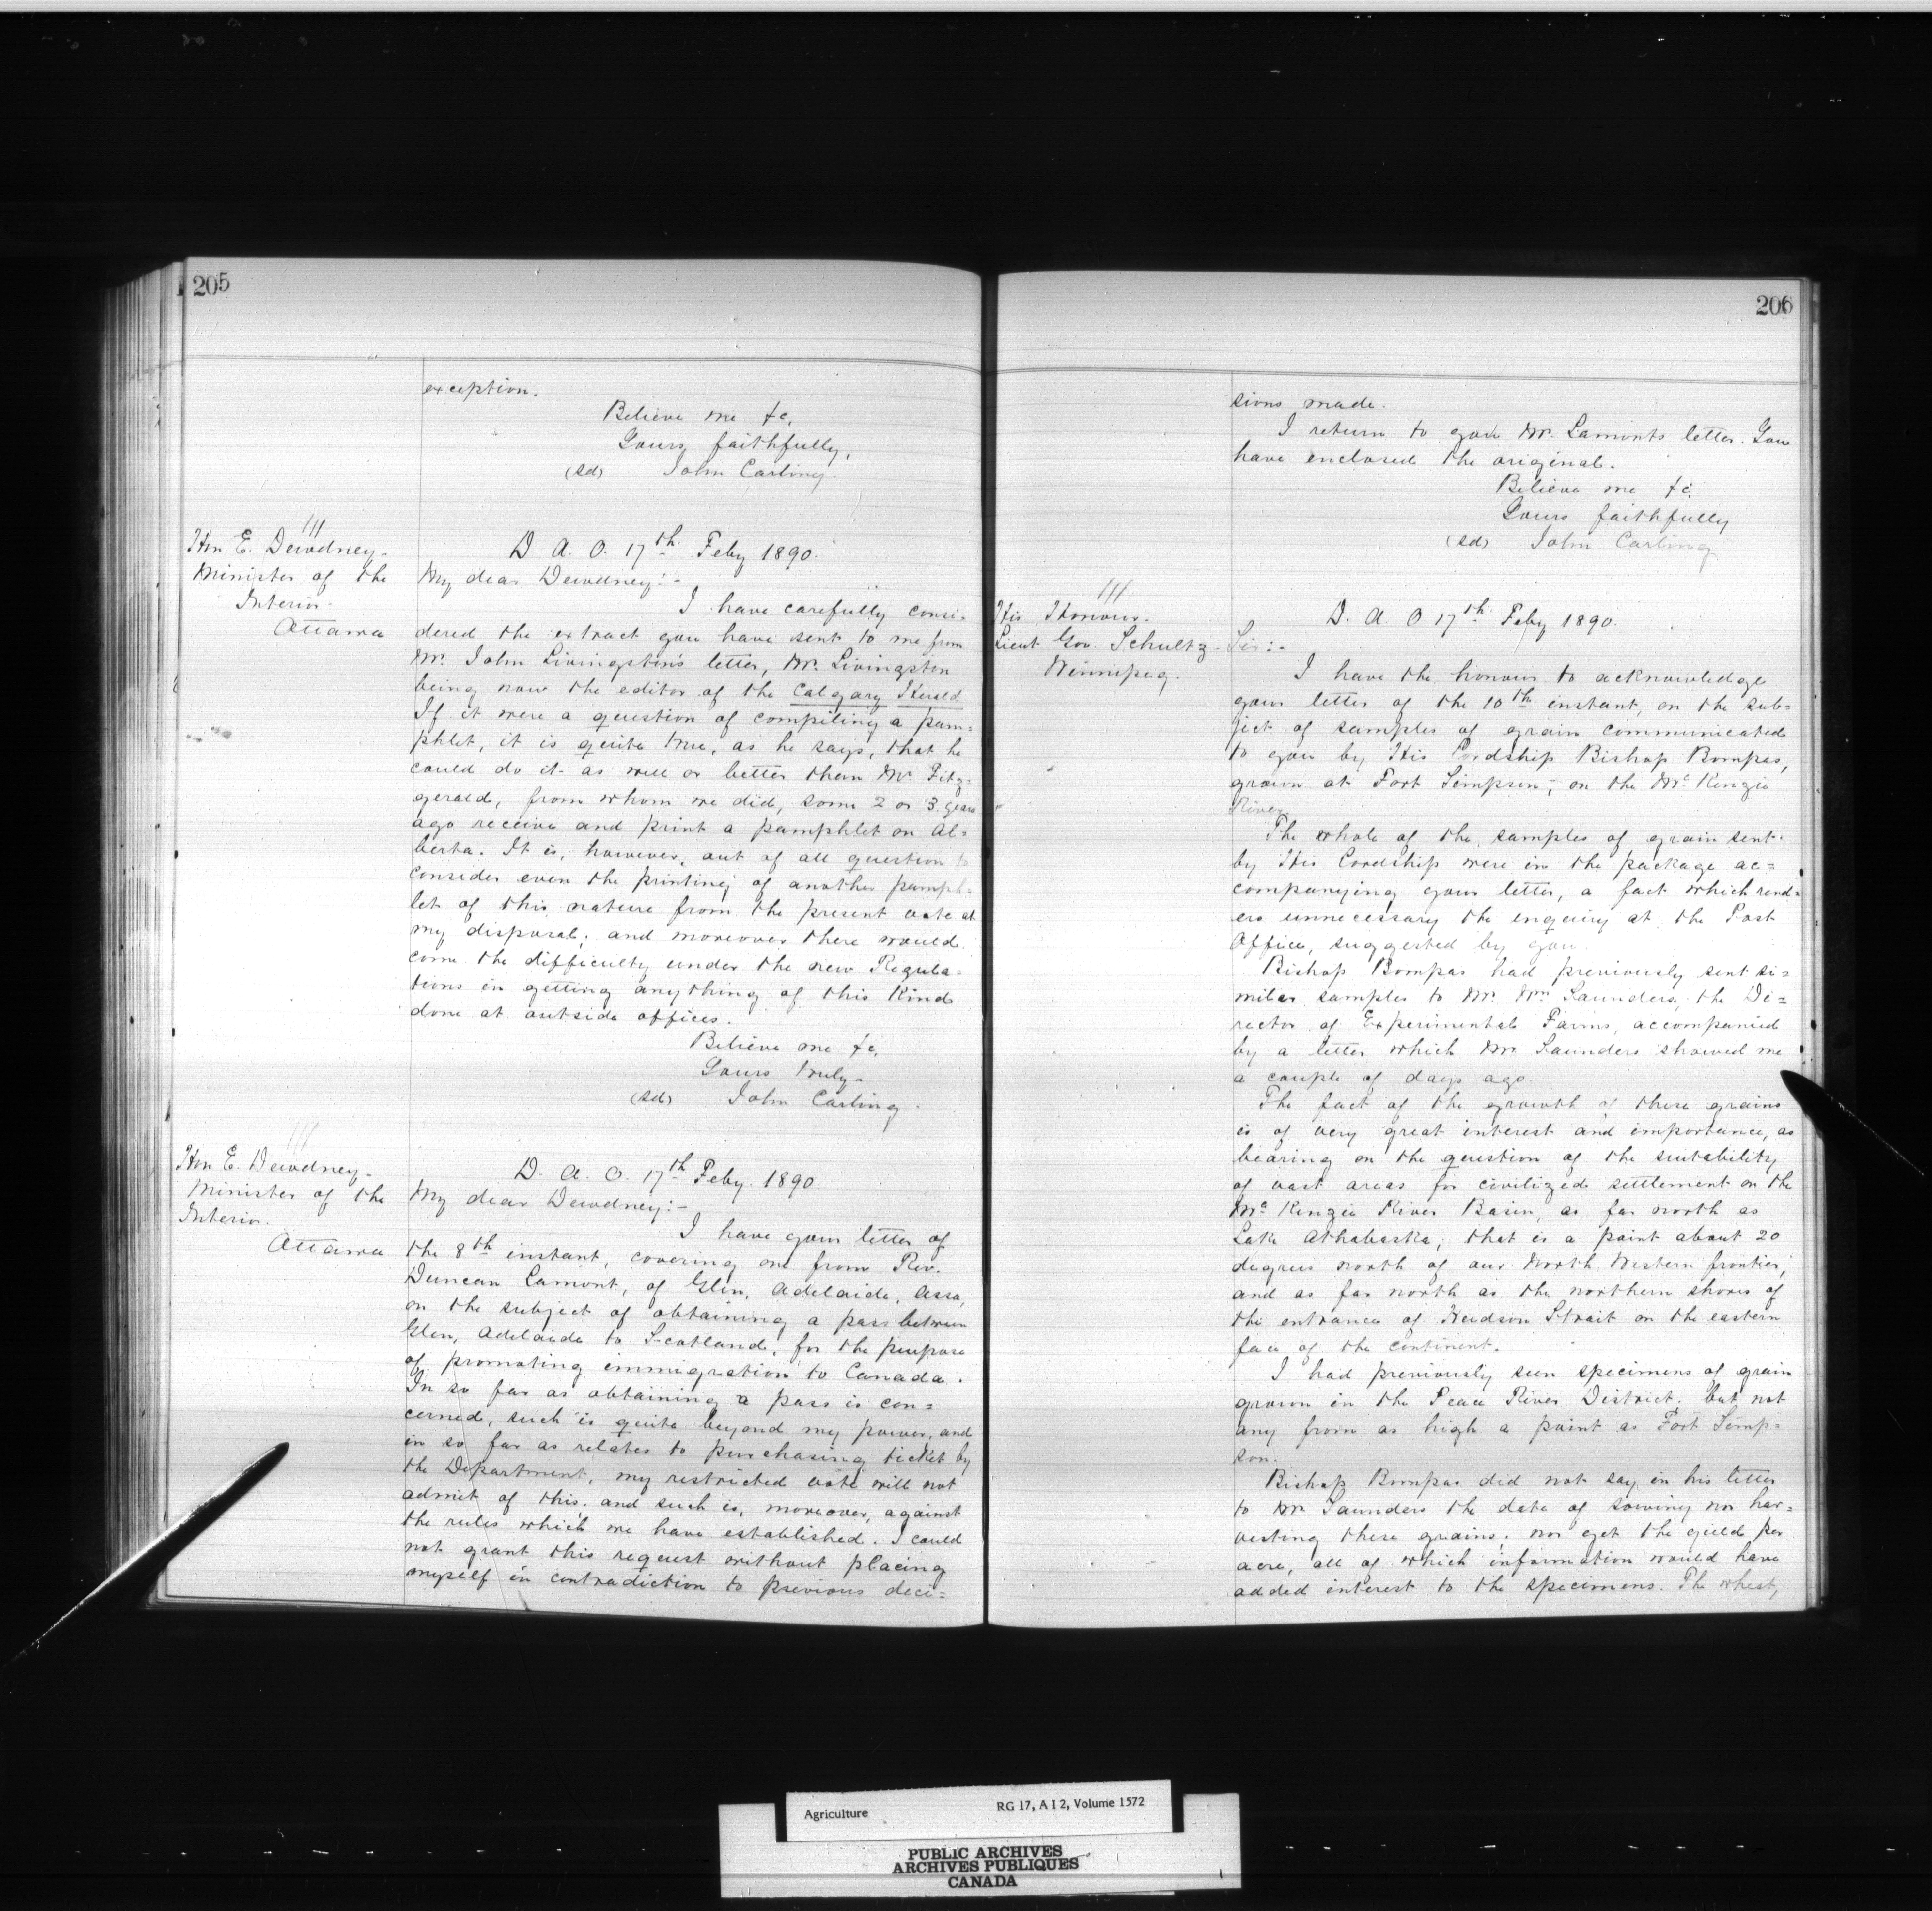 205
exception.
Believe me &c,
Yours faithfully,
(sd) John Carling.
///
Hon E. Dewdney-
Minister of the
Interior-
Ottawa
D. A. O. 17th Feby 1890.
My dear Dewdney:-
I have carefully consi-
dered the extract you have sent to me from
Mr. John Livingston's letter, Mr. Livingston
being now the editor of the Calgary Herald.
If it were a question of compiling a pam=
phlet, it is quite true, as he says, that he
could do it as well or better than Mr Fitz=
gerald, from whom we did, some 2 or 3 years
ago receive and print a pamphlet on Al=
berta. It is, however, out of all question to
consider even the printing of another pamph=
let of this nature from the present vote at
my disposal; and moreover there would
come the difficulty under the new Regula=
tions in getting anything of this kind
done at outside offices.
Believe me &c,
Yours truly-
(sd) John Carling.
///
Hon E. Dewdney-
Minister of the
Interior.
Ottawa
D. A. O. 17th Feby. 1890
My dear Dewdney:-
I have your letter of
the 8th instant, covering one from Rev.
Duncan Lamont, of Glen, Adelaide, Assa,
on the subject of obtaining a pass between
Glen, Adelaide to Scotland, for the purpose
of promoting immigration to Canada.
In so far as obtaining a pass is con=
cerned, such is quite beyond my power, and
in so far as relates to purchasing ticket by
the Department, my restricted vote will not
admit of this, and such is, moreover, against
the rules which we have established. I could
not grant this request without placing
myself in contradiction to previous deci=
206
sions made.
I return to you Mr. Lamonts letter. You
have enclosed the original.
Believe me &c,
Yours faithfully
(sd) John Carling
///
His Honour.
Lieut Gov. Schultz-
Winnipeg.
D. A. O 17th Feby 1890.
Sir:-
I have the honour to acknowledge
your letter of the 10th instant, on the sub=
ject of samples of grain communicated
to you by His Lordship Bishop Bompas,
grown at Fort Simpson, on the McKenzie
River
The whole of the samples of grain sent
by His Lordship were in the package ac=
companying your letter, a fact which rend=
ers unnecessary the enquiry at the Post
Office, suggested by you.
Bishop Bompas had previously sent si=
milar samples to Mr. Wm Saunders, the Di=
rector of Experimental Farms, accompanied
by a letter which Mr. Saunders showed me
a couple of days ago.
The fact of the growth of these grains
is of very great interest and importance, as
bearing on the question of the suitability
of vast areas for civilized settlement on the
McKenzie River Basin, as far north as
Lake Athabaska; that is a point about 20
degrees north of our North Western frontier,
and as far north as the northern shores of
the entrance of Hudson Strait on the eastern
face of the continent.
I had previously seen specimens of grain
grown in the Peace River District; but not
any from as high a point as Fort Simp=
son.
Bishop Bompas did not say in his letter
to Mr. Saunders the date of sowing nor har=
vesting these grains; nor yet the yield per
acre, all of which information would have
added interest to the specimens. The wheat,
Agriculture RG 17, A I 2, Volume 1572
PUBLIC ARCHIVES
ARCHIVES PUBLIQUES
CANADA